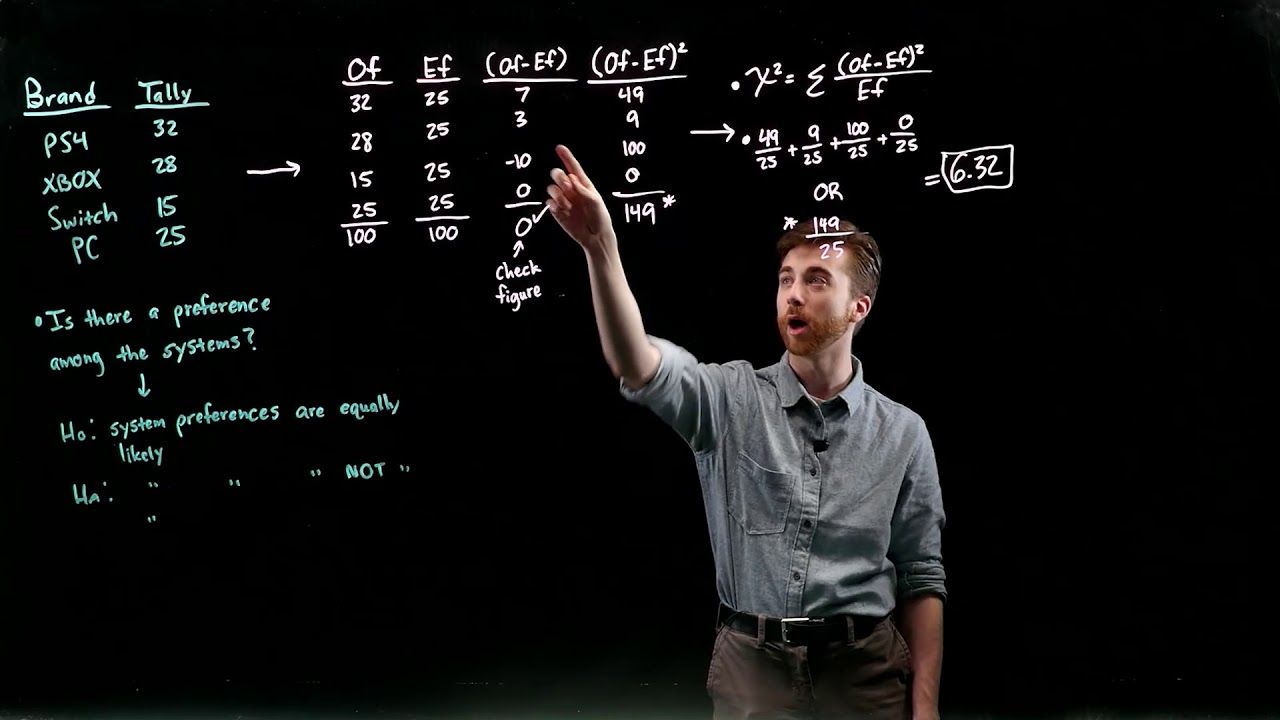 Brand Tally
PS4 32
XBOX 28
Switch 15
PC 25
• Is there a preference
among the systems?
↓
Ho: system preferences are equally
likely
Ha: " " " NOT "
"
→
Of Ef (Of-Ef) (Of-Ef)²
32 25 7 49
28 25 3 9
15 25 -10 100
25 25 0 0
100 100 0 ✓ 149 *
↑
check
figure
→
• χ² = Σ (Of-Ef)² / Ef
• 49/25 + 9/25 + 100/25 + 0/25
OR
* 149/25
= 6.32